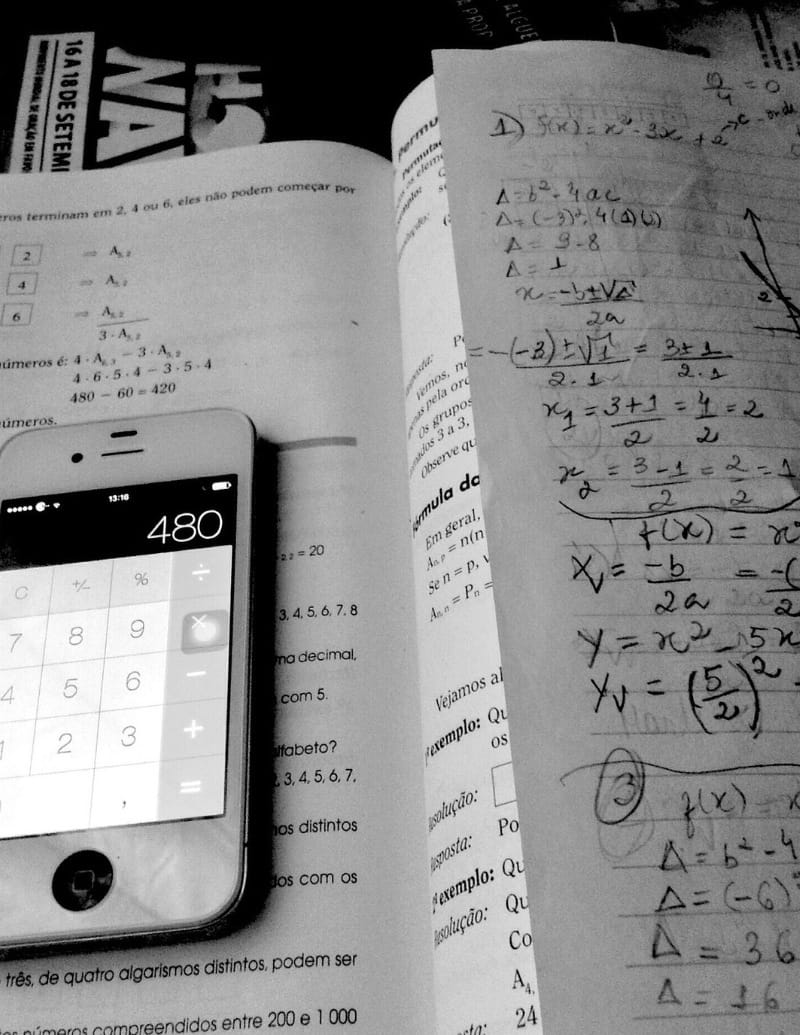 16 A 18 DE SETEM
NA
ALGUE
A PROP
eros terminam em 2, 4 ou 6, eles não podem começar por
2 ⇒
4 ⇒
6 ⇒
números é: 4 · A₆,₃ − 3 · A₅,₂
4 · 6 · 5 · 4 − 3 · 5 · 4
480 − 60 = 420
números.
13:16
480
C +/− % ÷
7 8 9 ×
4 5 6 −
1 2 3 +
, =
2 2 = 20
3, 4, 5, 6, 7, 8
ma decimal,
com 5.
lfabeto?
, 3, 4, 5, 6, 7,
nos distintos
dos com os
três, de quatro algarismos distintos, podem ser
os números compreendidos entre 200 e 1 000
Permu
Permuta
os eleme
Vemos, n
nas pela ord
Os grupos
mados 3 a 3,
Observe qu
órmula da
Em geral,
Aₙ,ₚ = n(n
Se n = p,
Aₙ,ₙ = Pₙ =
Vejamos al
1º exemplo: Qu
os
Resolução:
Resposta: Po
2º exemplo: Qu
Resolução: Qu
Co
A₄,
sta: 24
= 0
1) f(x) = x² - 3x + 2
Δ = b² - 4ac
Δ = (-3)² - 4(1)(2)
Δ = 9 - 8
Δ = 1
x = -b ± √Δ / 2a
= -(-3) ± √1 / 2 · 1 = 3 ± 1 / 2 · 1
x₁ = 3+1 / 2 = 4/2 = 2
x₂ = 3-1 / 2 = 2/2 = 1
f(x) = x²
Xv = -b / 2a = -( / 2
Y = x² - 5x
Yv = (5/2)² -
3 f(x) = x
Δ = b² - 4
Δ = (-6)²
Δ = 36
Δ = 16